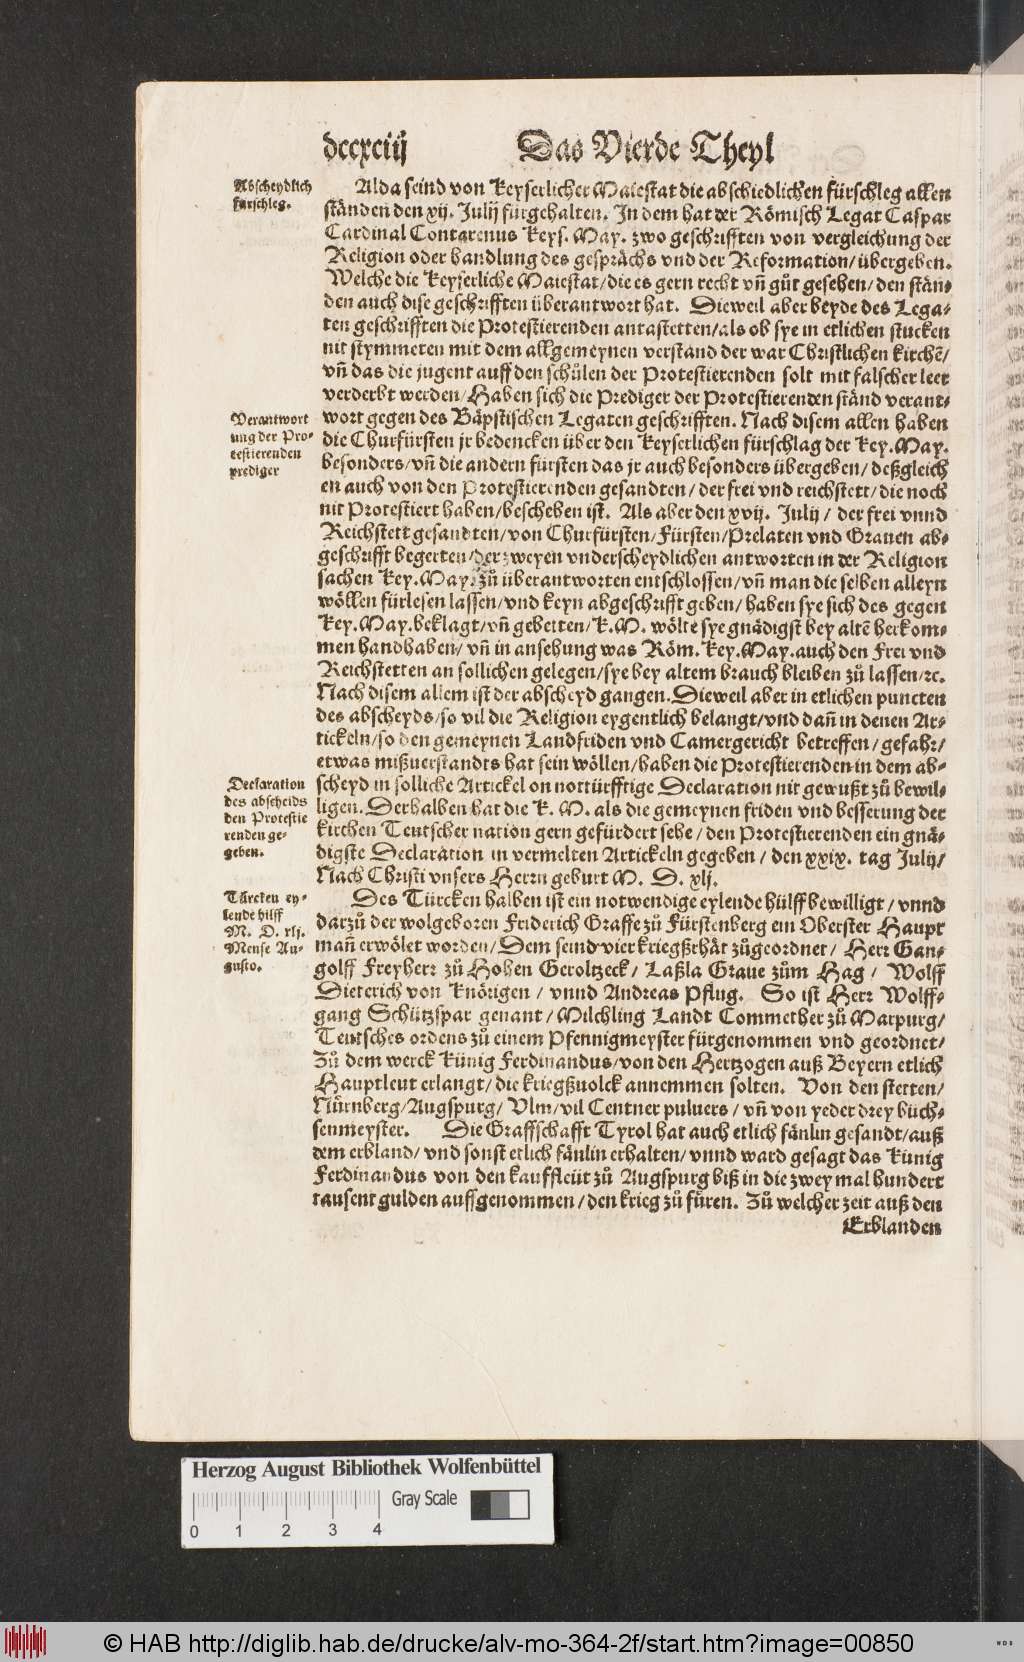 dccxciij Das Vierde Theyl
Abscheydlich
fürschleg.
Alda seind von Keyserlicher Maiestat die abschiedlichen fürschleg allen
ständen den xij. Julij fürgehalten. In dem hat der Römisch Legat Caspar
Cardinal Contarenus Keys. May. zwo geschrifften von vergleichung der
Religion oder handlung des gesprächs vnd der Reformation/ übergeben.
Welche die Keyserliche Maiestat/ die es gern recht vñ gůt gesehen/ den stän-
den auch dise geschrifften überantwort hat. Dieweil aber beyde des Lega-
ten geschrifften die Protestierenden antastetten/ als ob sye in etlichen stucken
nit stymmeten mit dem allgemeynen verstand der war Christlichen kirchē/
vñ das die jugent auff den schůlen der Protestierenden solt mit falscher leer
verderbt werden/ Haben sich die Prediger der Protestierenden ständ verant-
Verantwort
ung der Pro-
testierenden
prediger
wort gegen des Bäpstischen Legaten geschrifften. Nach disem allen haben
die Churfürsten jr bedencken über den Keyserlichen fürschlag der Key. May.
besonders/ vñ die andern fürsten das jr auch besonders übergeben/ deßgleich
en auch von den Protestierenden gesandten/ der frei vnd reichstett/ die noch
nit Protestiert haben/ beschehen ist. Als aber den xvij. Julij/ der frei vnnd
Reichstett gesandten/ von Churfürsten/ Fürsten/ Prelaten vnd Grauen ab-
geschrifft begerten/ der zweyen vnderscheydlichen antworten in der Religion
sachen Key. May. zů überantworten entschlossen/ vñ man die selben alleyn
wöllen fürlesen lassen/ vnd keyn abgeschrifft geben/ haben sye sich des gegen
Key. May. beklagt/ vñ gebetten/ K. M. wölte sye gnädigst bey altē herkom-
men handhaben/ vñ in ansehung was Röm. Key. May. auch den Frei vnd
Reichstetten an sollichen gelegen/ sye bey altem brauch bleiben zů lassen/ ꝛc.
Nach disem allem ist der abscheyd gangen. Dieweil aber in etlichen puncten
des abscheyds/ so vil die Religion eygentlich belangt/ vnd dañ in denen Ar-
tickeln/ so den gemeynen Landfriden vnd Camergericht betreffen/ gefahr/
etwas mißuerstandts hat sein wöllen/ haben die Protestierenden in dem ab-
Declaration
des abscheids
den Protestie
renden ge-
geben.
scheyd in solliche Artickel on notturfftige Declaration nit gewußt zů bewil-
ligen. Derhalben hat die K. M. als die gemeynen friden vnd besserung der
kirchen Teutscher nation gern gefürdert sehe/ den Protestierenden ein gnä-
digste Declaration in vermelten Artickeln gegeben/ den xxix. tag Julij/
Nach Christi vnsers Herrn geburt M. D. xlj.
Türcken ey-
lende hilff
M. D. xlj.
Mense Au-
gusto.
Des Türcken halben ist ein notwendige eylende hülff bewilligt/ vnnd
darzů der wolgeboren Friderich Graffe zů Fürstenberg ein Oberster Haupt
mañ erwölet worden/ Dem seind vier kriegßrhät zůgeordnet/ Herr Gan-
golff Freyherr zů Hohen Geroltzeck/ Laßla Graue zům Hag/ Wolff
Dieterich von Knörigen/ vnnd Andreas Pflug. So ist Herr Wolff-
gang Schützspar genant/ Milchling Landt Commether zů Marpurg/
Teutsches ordens zů einem Pfennigmeyster fürgenommen vnd geordnet/
Zů dem werck Künig Ferdinandus/ von den Hertzogen auß Beyern etlich
Hauptleut erlangt/ die kriegßuolck annemmen solten. Von den stetten/
Nürnberg/ Augspurg/ Vlm/ vil Centner puluers/ vñ von yeder drey büch-
senmeyster. Die Graffschafft Tyrol hat auch etlich fänlin gesandt/ auß
dem erbland/ vnd sonst etlich fänlin erhalten/ vnnd ward gesagt das Künig
Ferdinandus von den kauffleüt zů Augspurg biß in die zwey mal hundert
tausent gulden auffgenommen/ den krieg zů füren. Zů welcher zeit auß den
Erblanden
Herzog August Bibliothek Wolfenbüttel
Gray Scale
0 1 2 3 4
© HAB http://diglib.hab.de/drucke/alv-mo-364-2f/start.htm?image=00850